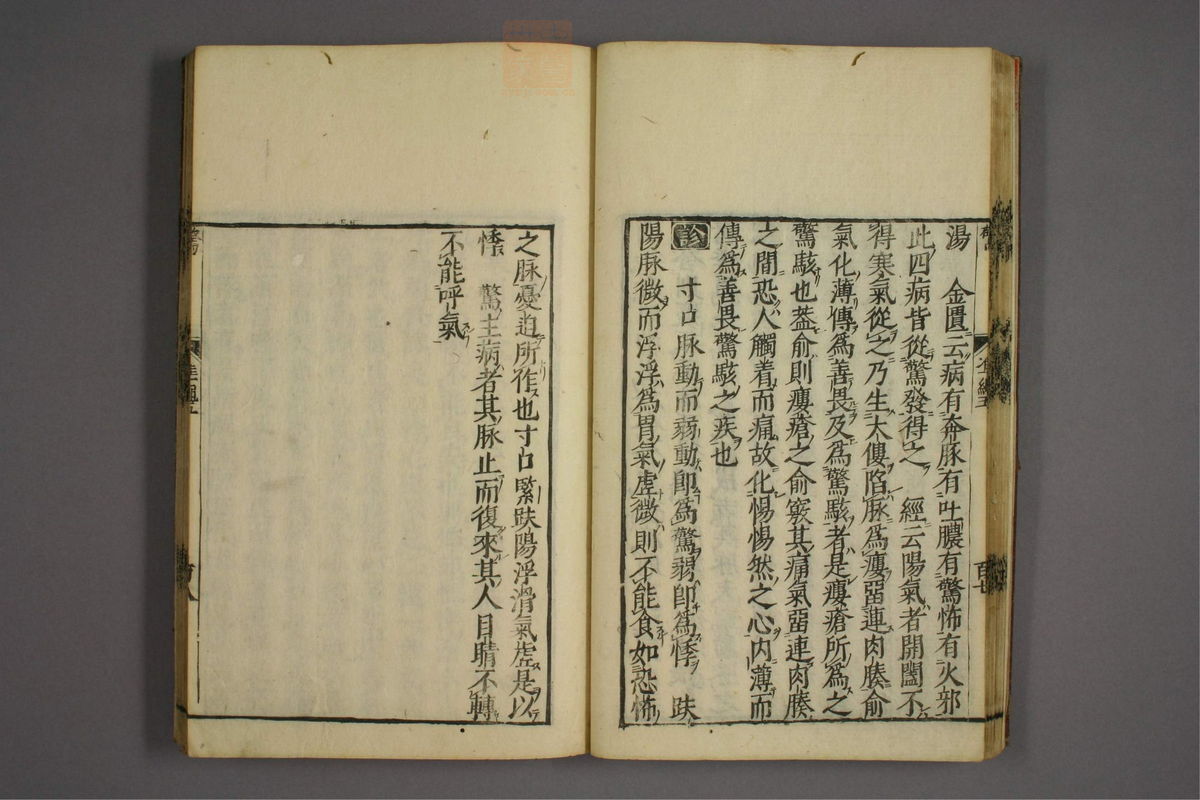 湯　金匱云病有奔豚有吐膿有驚怖有火邪
此四病皆從驚發得之　經云陽氣者開闔不
得寒氣從之乃生大僂陷脉爲瘻畱連肉腠俞
氣化薄傳爲善畏及爲驚駭者是瘻瘡所爲之
驚駭也蓋俞則瘻瘡之俞竅其痛氣畱連肉腠
之間恐人觸着而痛故化惕惕然之心内薄而
傳爲善畏驚駭之疾也
診　寸口脉動而弱動即爲驚弱即爲悸　趺
陽脉微而浮浮爲胃氣虛微則不能食如恐怖
之脉憂迫所作也寸口緊趺陽浮滑氣虛是以
悸　驚主病者其脉止而復來其人目睛不轉
不能呼氣
百七
百八